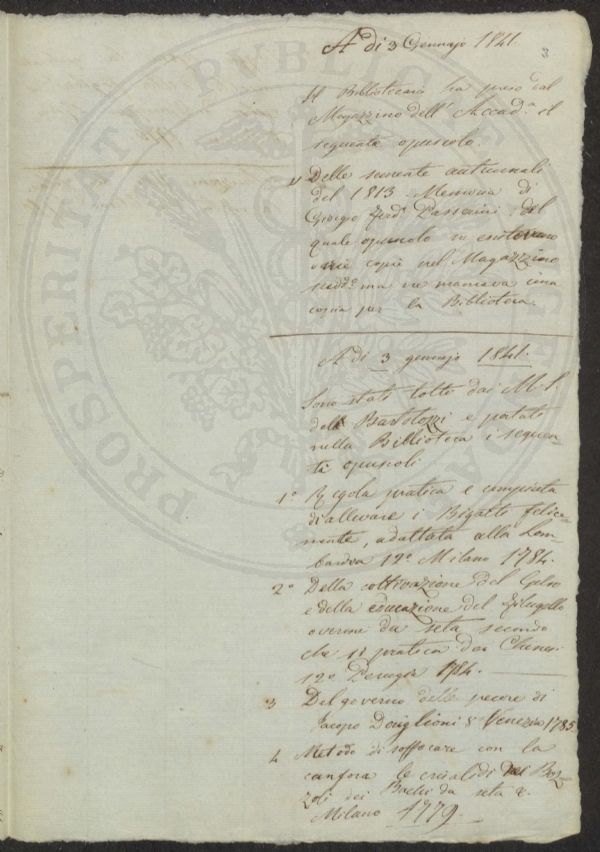 A di 3 Gennajo 1841.
3
Il Bibliotecario ha preso dal
Magazzino dell' Accad.a il
seguente opuscolo.
Delle semente autunnali
del 1813 Memoria di
Giorgio Ferd.o Passerini, del
quale opuscolo ne esistevano
varie copie nel Magazzino
sudd.o ma ne mancava una
copia per la Biblioteca.
A di 3 gennajo 1841.
Sono stati tolti dai M. S.
del Bartolozzi e portati
nella Biblioteca i seguen-
ti opuscoli
1° Regola pratica e compiuta
di allevare i Bigatti felice-
mente, adattata alla Lom-
bardia 12° Milano 1784.
2° Della coltivazione del Gelso
e della educazione del Filugello
o verme da seta secondo
che si pratica dai Chinesi
12° Perugia 1784.
3 Del governo delle pecore di
Jacopo Doniglioni 8 Venezia 1785
4 Metodo di soffocare con la
canfora le crisalidi nei Boz-
zoli dei Bachi da seta 8.
Milano 1779.
PROSPERITATI PVBLICAE